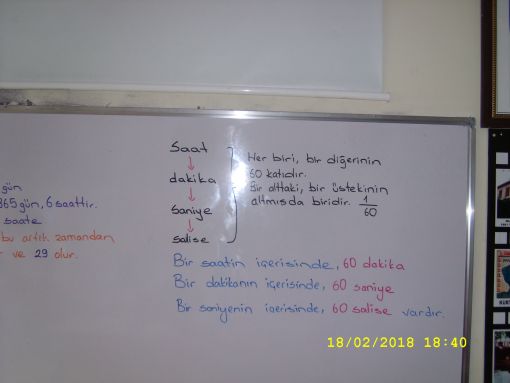 gün
365 gün, 6 saattir.
saate
bu artık zamandan
ve 29 olur.
Saat
dakika
saniye
salise
Her biri, bir diğerinin
60 katıdır.
Bir alttaki, bir üstekinin
altmışda biridir. 1/60
Bir saatin içerisinde, 60 dakika
Bir dakikanın içerisinde, 60 saniye
Bir saniyenin içerisinde, 60 salise vardır.
18/02/2018 18:40